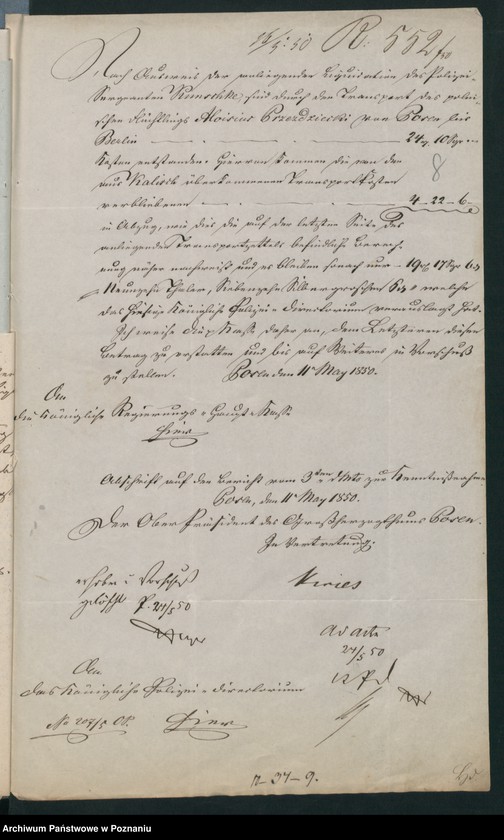 14/5. 50 R: 552/50
Nach Ausweis der anliegenden Liquidation des Polizei-
Sergeanten Rumschke, sind durch den Transport des polni-
schen Flüchtlings Aloisius Przedziecki von Posen bis
Berlin 24 10 Sgr
8
Kosten entstanden. Hiervon kommen die von den
aus Kalisch überkommenen Transportkosten
verbliebenen 4 - 22 - 6 -
in Abzug, wie dies die auf der letzten Seite des
anliegenden Transportzettels befindliche Berech-
nung näher nachweist und es bleiben sonach nur 19 17 Sgr 6
Neunzehn Thaler, Siebenzehn Silbergroschen welche
das hiesige Königliche Polizei-Directorium verauslagt hat.
Ich weise die Kasse daher an, dem Letzteren diesen
Betrag zu erstatten und bis auf Weiteres in Vorschuß
zu stellen. Posen den 11 May 1850.
An
die Königliche Regierungs-Haupt-Kasse
hier
Abschrift auf den Bericht vom 3ten d Mts zur Kenntnißnahme.
Posen, den 11 May 1850.
Der Ober Präsident des Großherzogthums Posen.
In Vertretung.
Vorschuß
gelöscht P. 24/5 50
ad acta
24/5. 50
An
das Königliche Polizei-Directorium
No 208/5 OP. hier
n - 37 - 9.
Archiwum Państwowe w Poznaniu